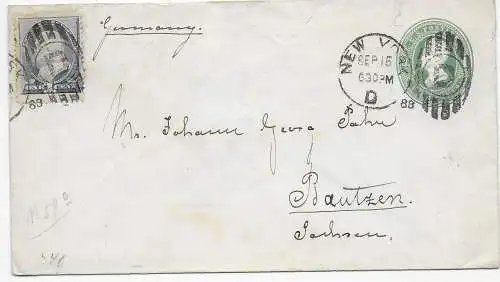 Germany.
NEW YORK
SEP 15
630PM
D
88
88
ONE CENT
Mr. Johann Georg Jahn
Bautzen.
Sachsen.